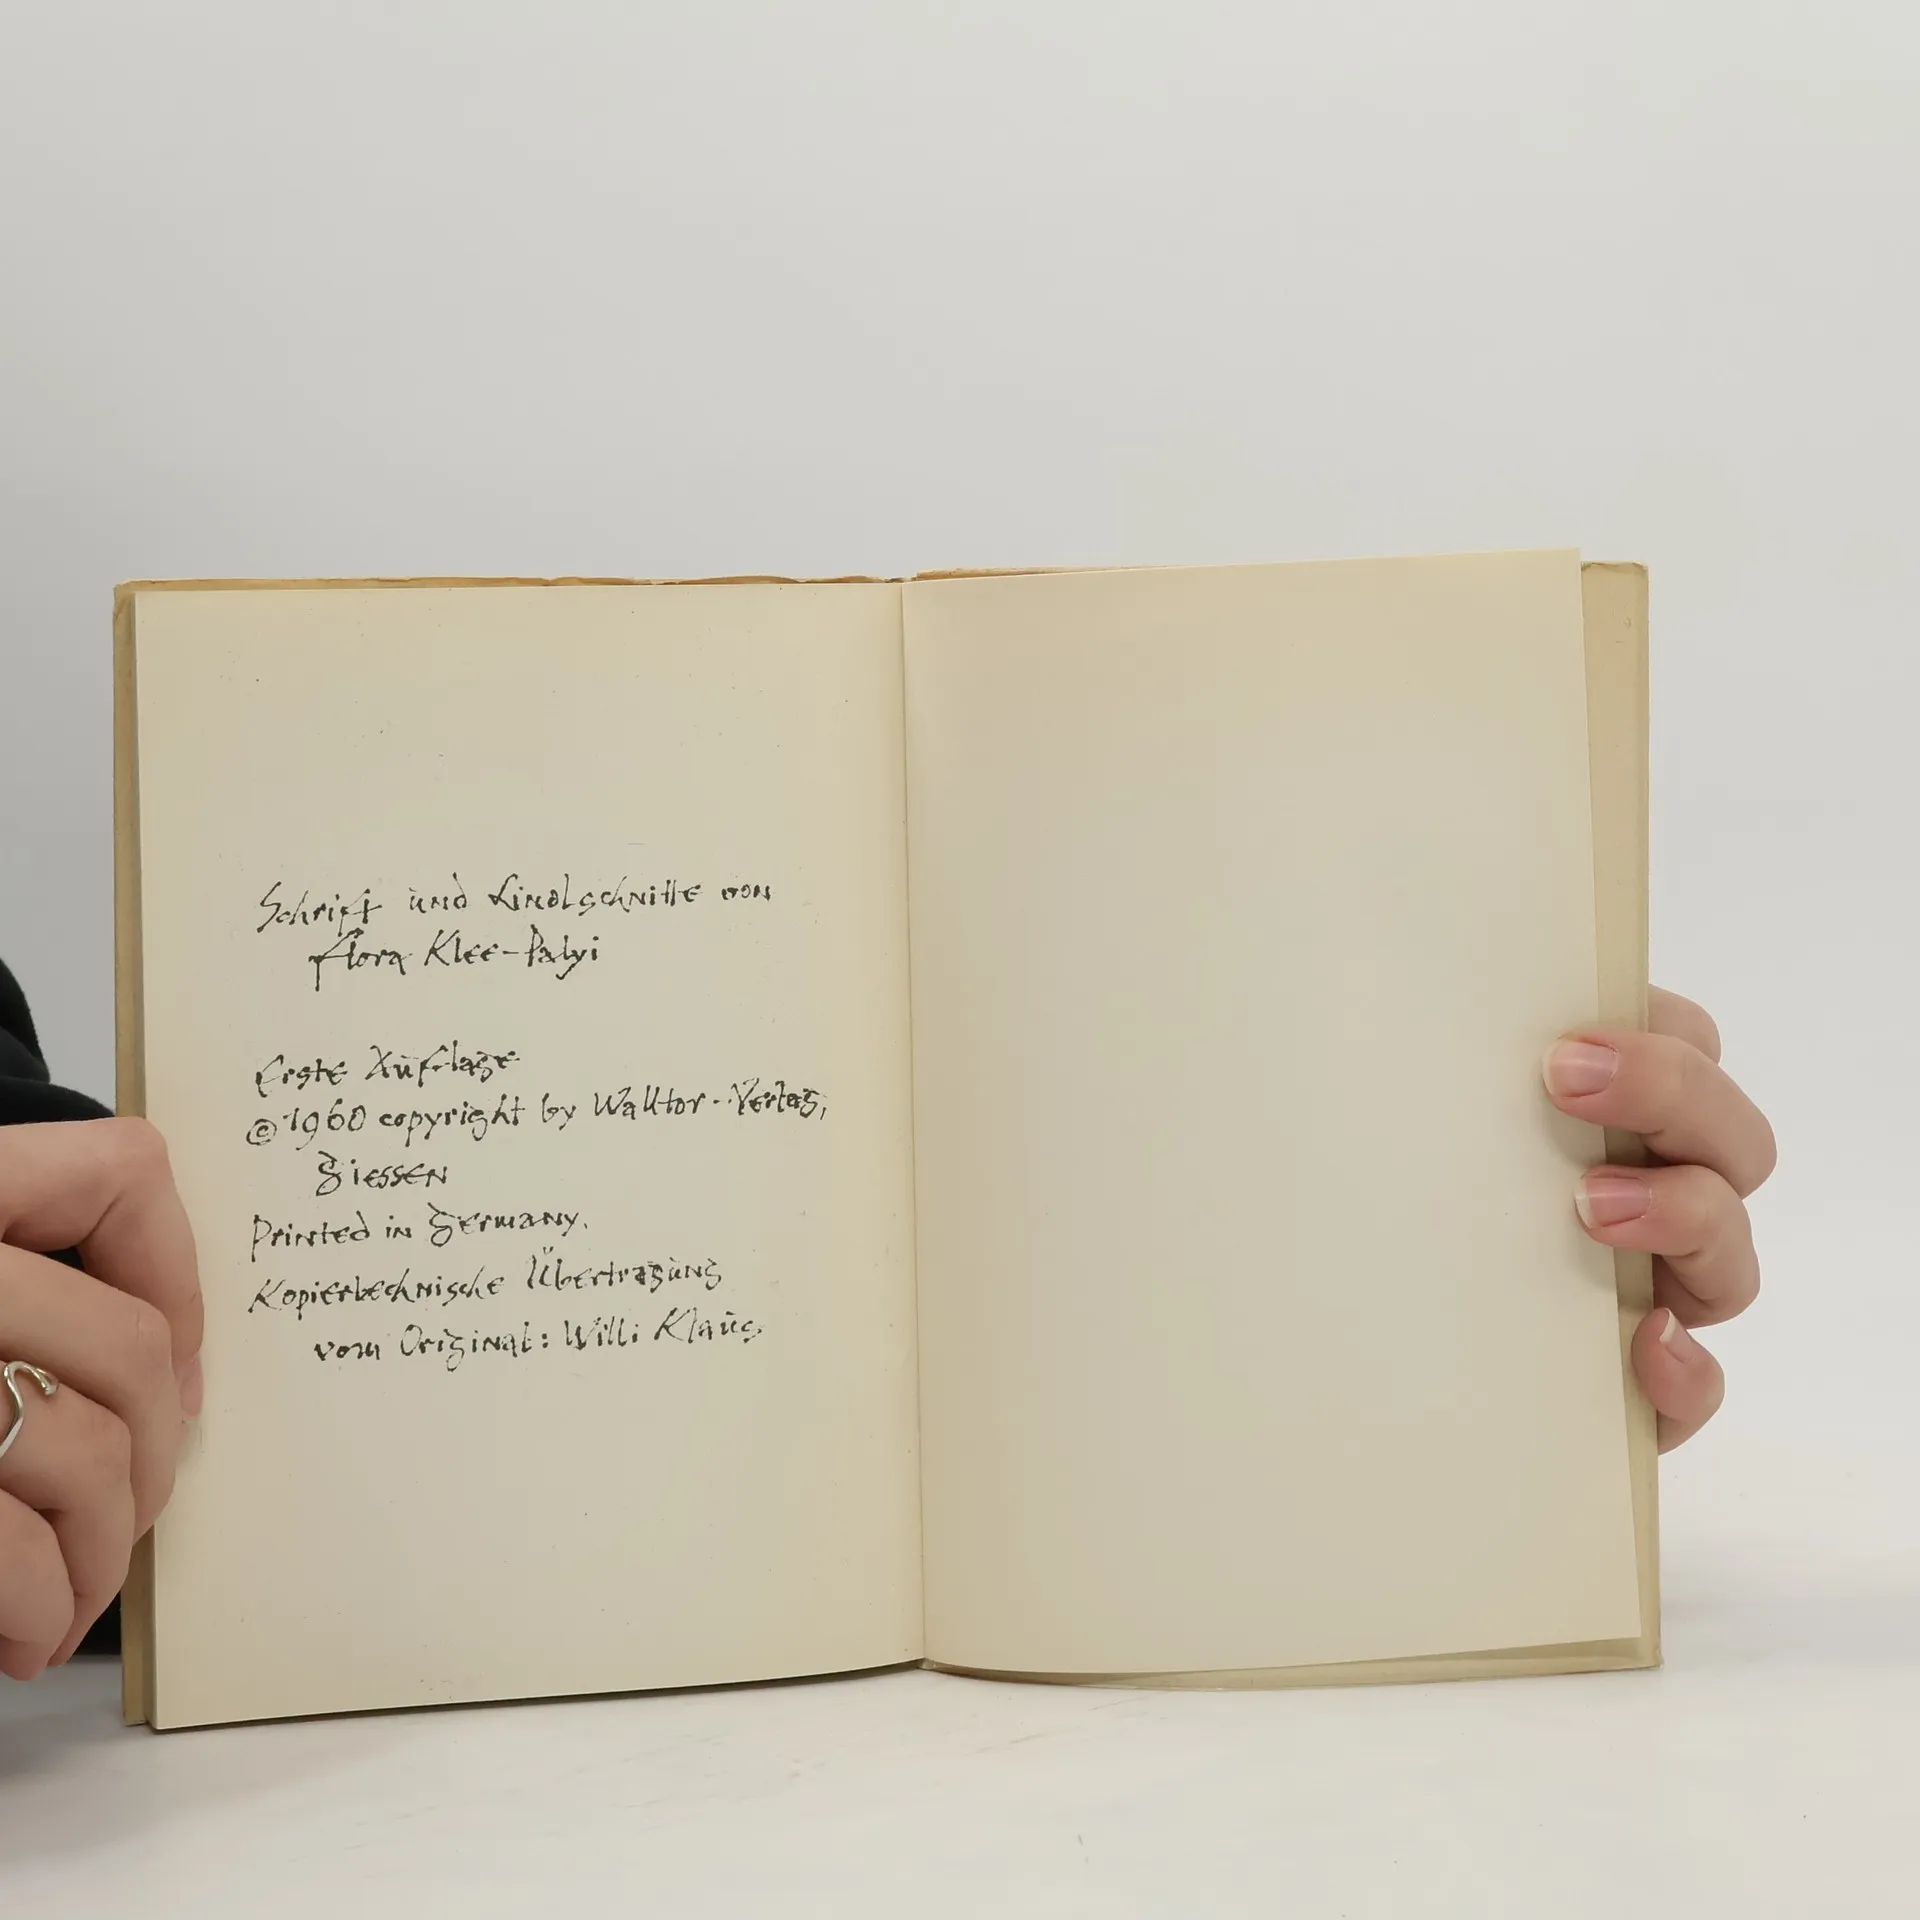 Schrift und Linolschnitte von
Flora Klee-Palyi
Erste Auflage
©1960 copyright by Walltor-Verlag,
Giessen
Printed in Germany.
Kopiertechnische Übertragung
vom Original: Willi Klaus